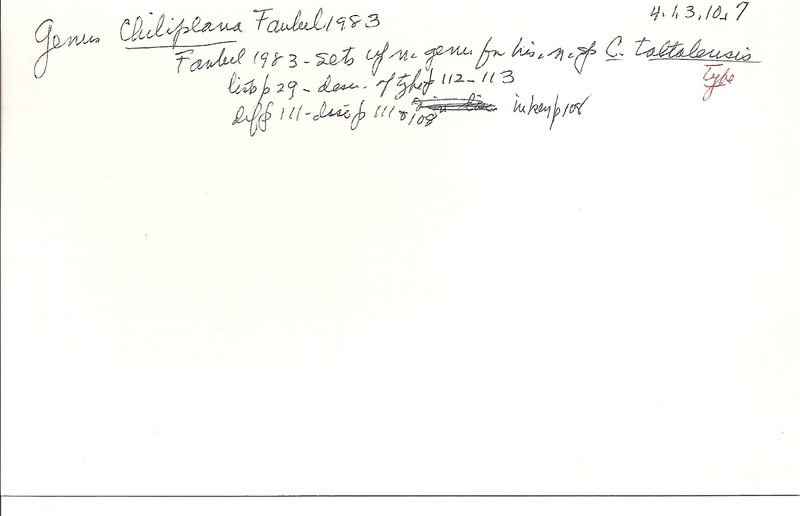 4.1.3.10.7
Genus Chiliplana Faubel 1983
Faubel 1983 - sets up n. genus for his n. sp C. taltalensis
Type
list p 29 - descr. of type p 112-113
diff p 111 - disc p 111 & 108 in key p 108